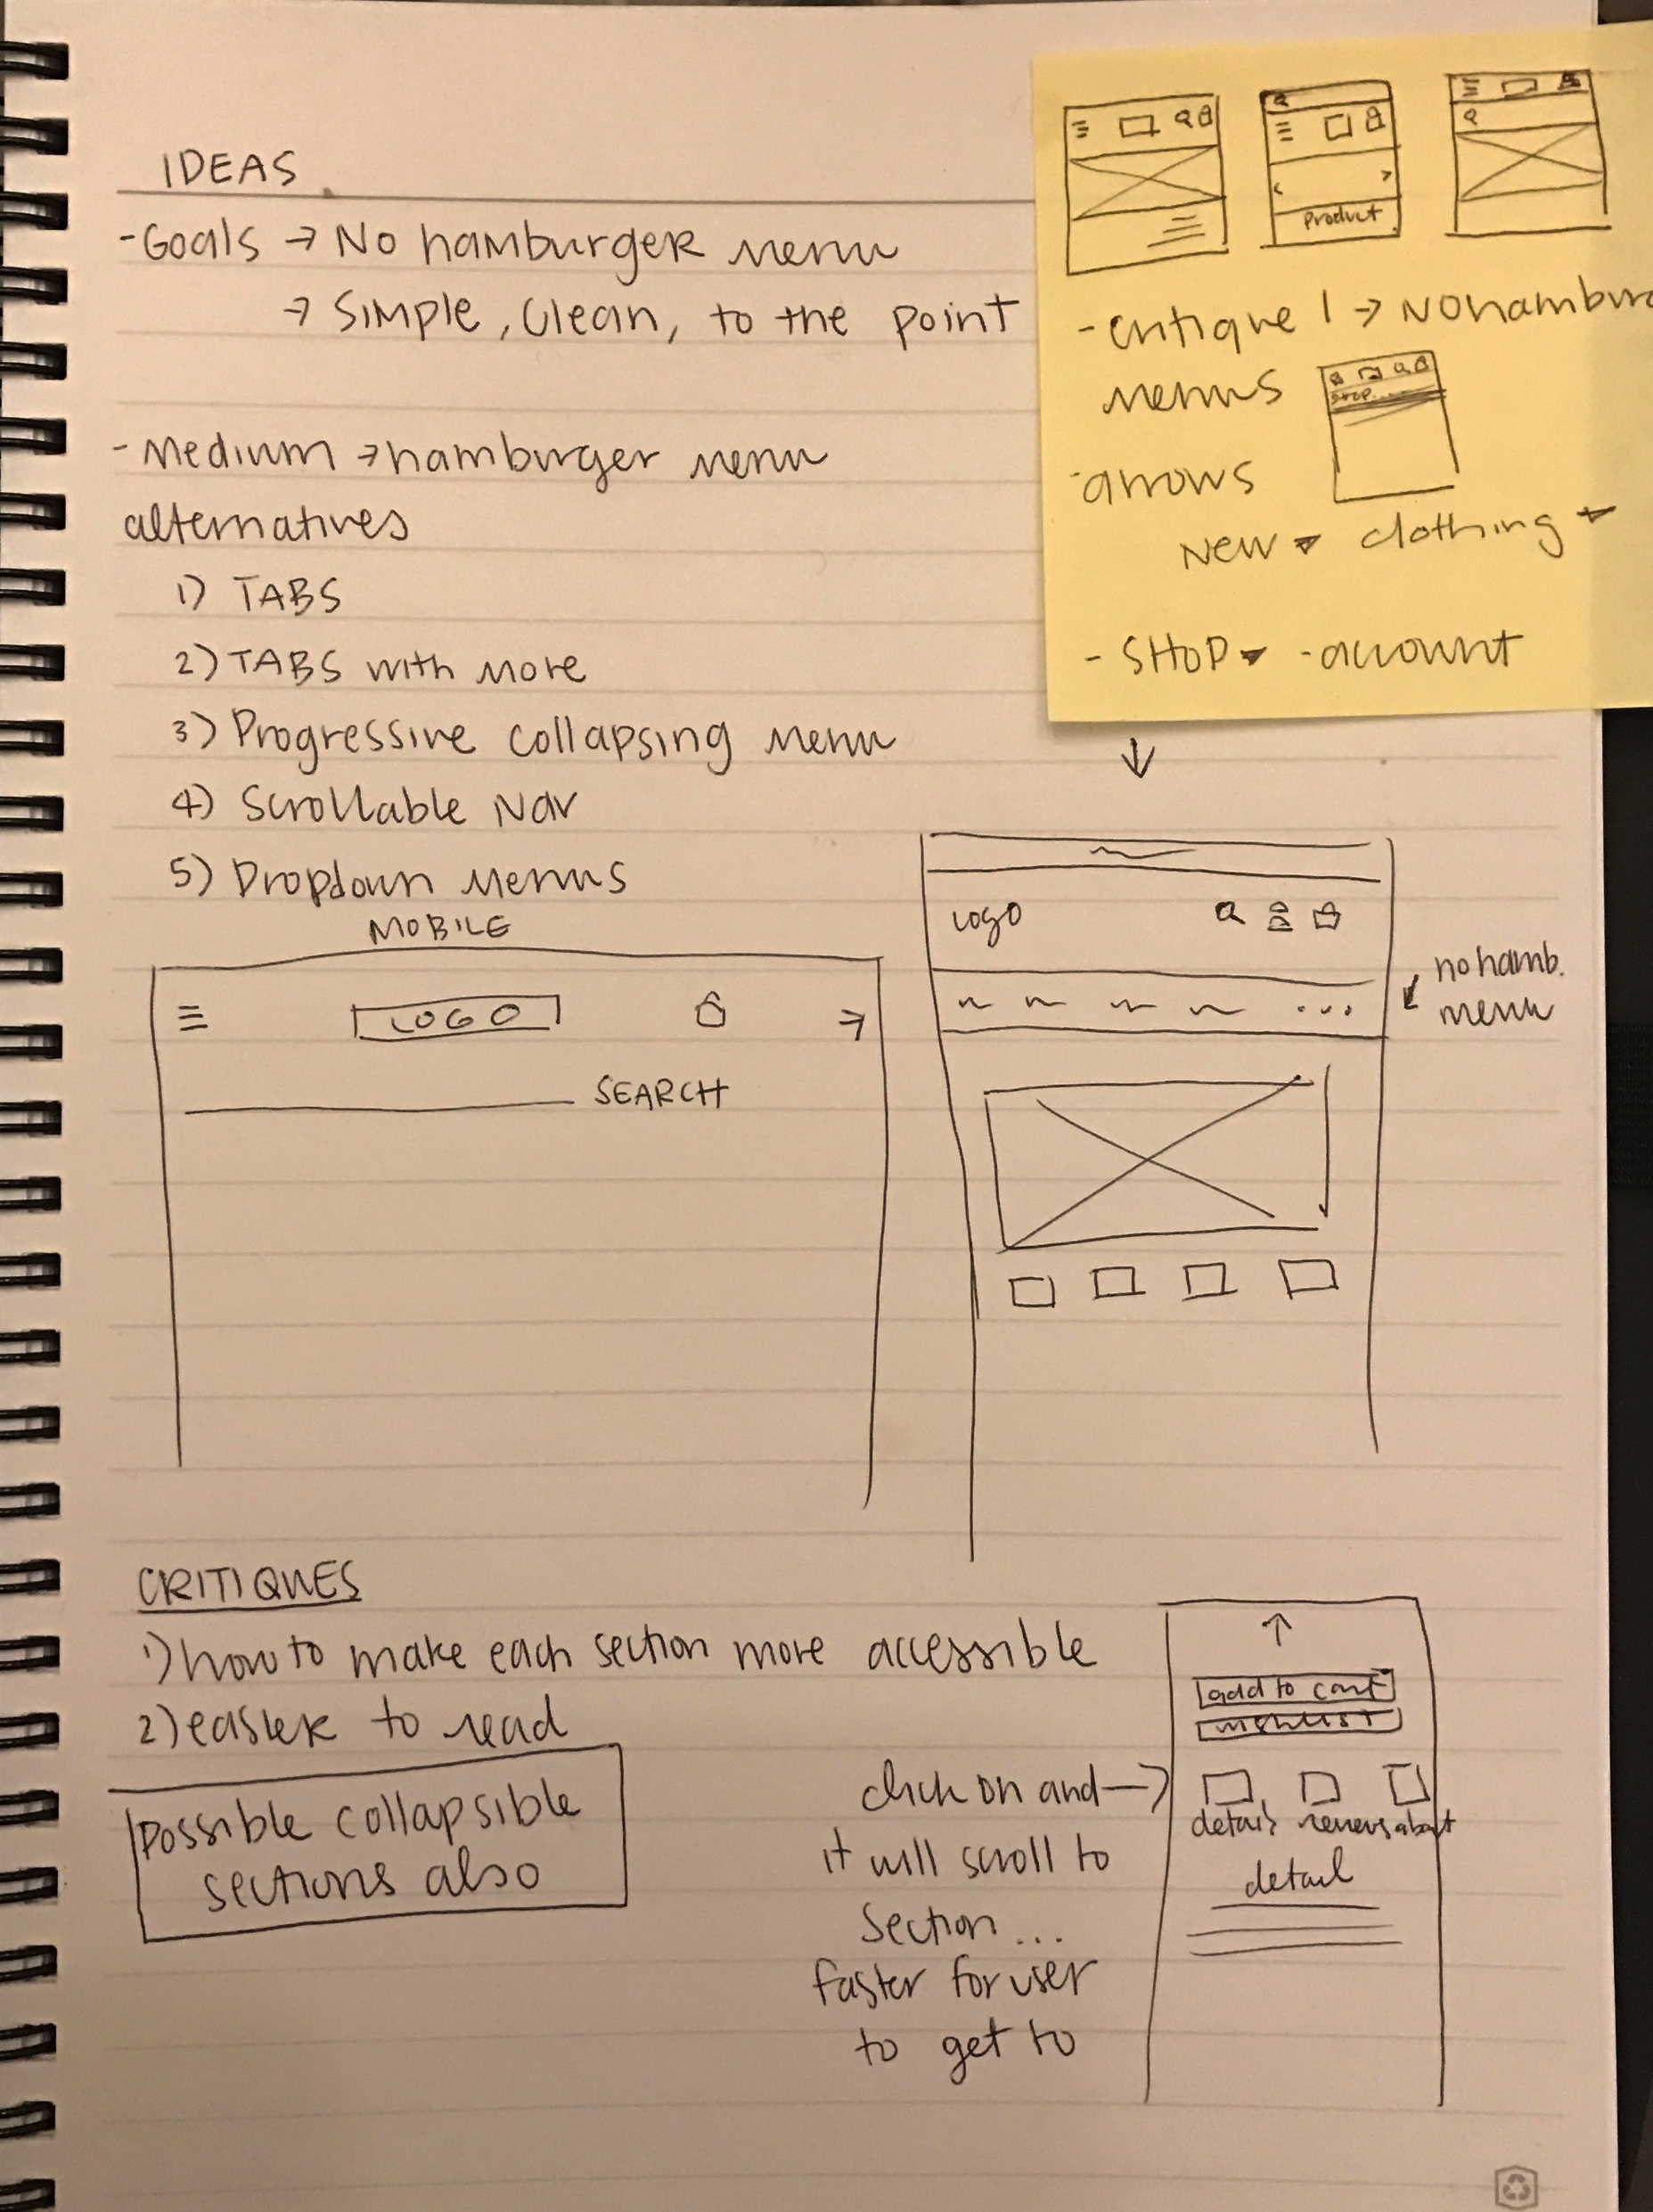 IDEAS
-Goals → No hamburger menu
→ Simple, Clean, to the point
-Medium → hamburger menu
alternatives
1) TABS
2) TABS with more
3) Progressive collapsing menu
4) Scrollable Nav
5) Dropdown Menus
Product
-critique 1 → NO hambur
menus
SHOP...
-arrows
New ▾ clothing ▾
- SHOP ▾ -account
MOBILE
LOGO
SEARCH
↓
Logo
...
no hamb.
menu
CRITIQUES
1) how to make each section more accessible
2) easier to read
Possible collapsible
sections also
↑
add to cart
wishlist
click on and →
it will scroll to
Section ...
faster for user
to get to
details reviews about
detail